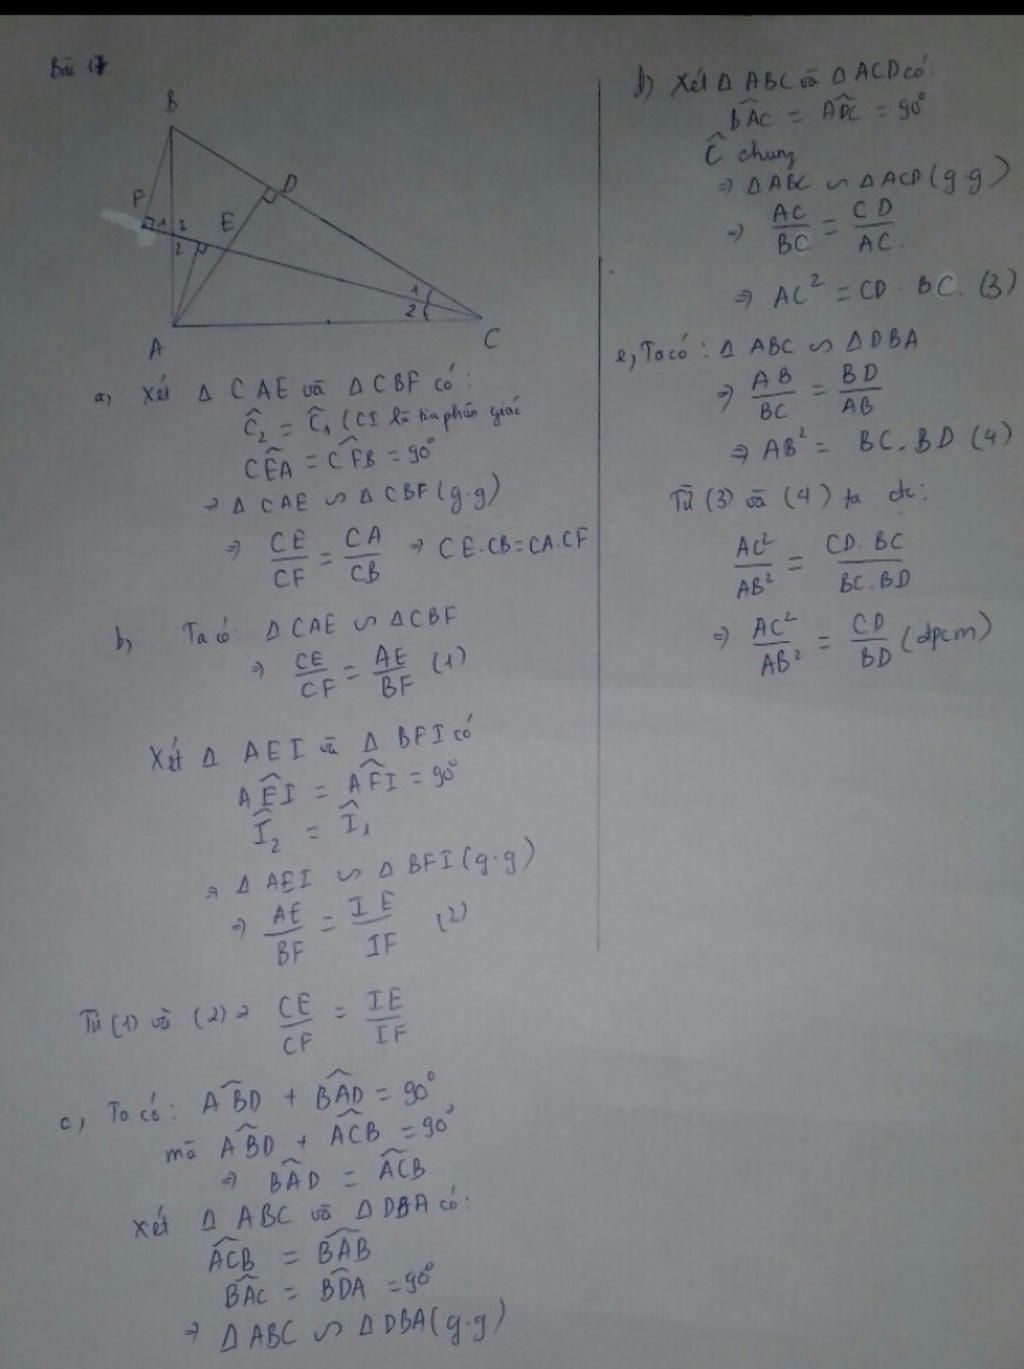 Bài 17
B
F
D
1
1
E
2
1
2
A
C
a, Xét Δ CAE và Δ CBF có:
Ĉ₂ = Ĉ₁ (CI là tia phân giác
CÊA = CF̂B = 90°
⇒ Δ CAE ∽ Δ CBF (g.g)
⇒ CE/CF = CA/CB ⇒ CE.CB = CA.CF
b, Ta có: ΔCAE ∽ ΔCBF
⇒ CE/CF = AE/BF (1)
Xét Δ AEI và Δ BFI có
AÊI = AF̂I = 90°
Î₂ = Î₁
⇒ Δ AEI ∽ Δ BFI (g.g)
⇒ AE/BF = IE/IF (2)
Từ (1) và (2) ⇒ CE/CF = IE/IF
c, Ta có: AB̂D + BÂD = 90°
mà AB̂D + AĈB = 90°
⇒ BÂD = AĈB
Xét Δ ABC và Δ DBA có:
AĈB = BÂB
BÂC = BD̂A = 90°
⇒ Δ ABC ∽ Δ DBA (g.g)
d) Xét Δ ABC và Δ ACD có:
BÂC = AD̂C = 90°
Ĉ chung
⇒ ΔABC ∽ ΔACD (g.g)
⇒ AC/BC = CD/AC.
⇒ AC² = CD . BC. (3)
e, Ta có: Δ ABC ∽ ΔDBA
⇒ AB/BC = BD/AB
⇒ AB² = BC.BD (4)
Từ (3) và (4) ta đc:
AC²/AB² = CD.BC/BC.BD
⇒ AC²/AB² = CD/BD (đpcm)